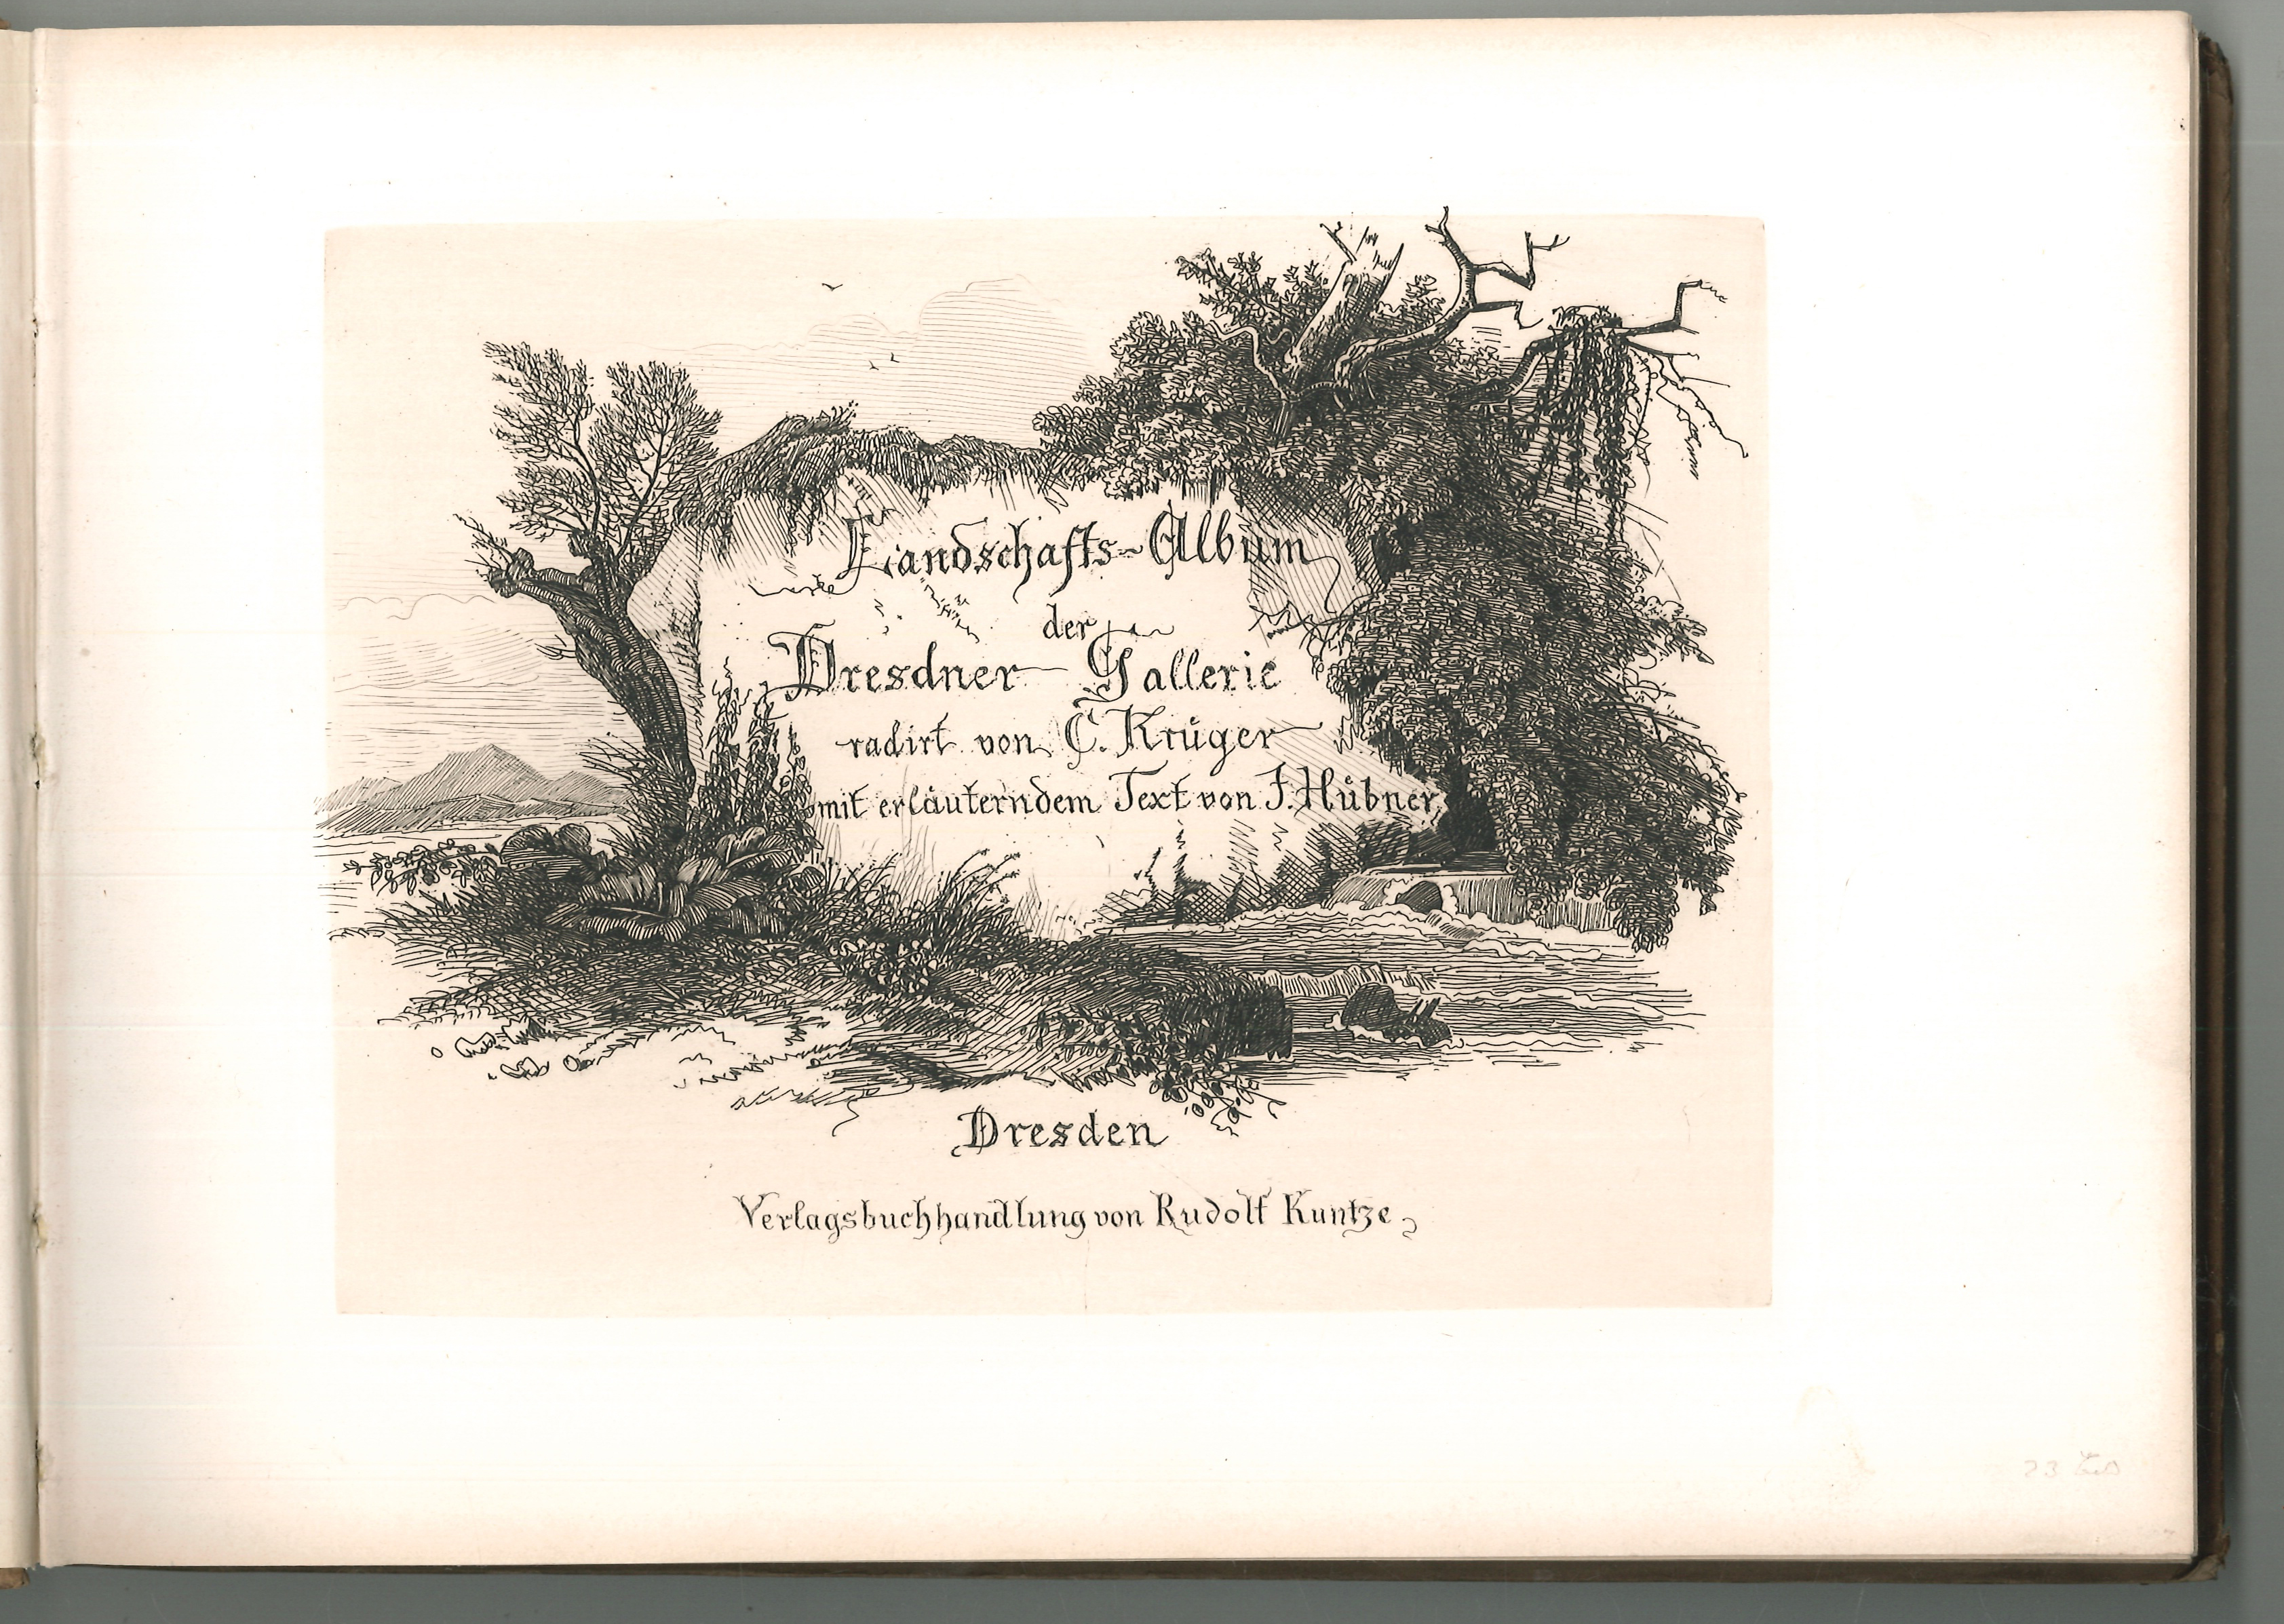 Landschafts-Album
der
Dresdner Gallerie
radirt von C. Krüger
mit erläuterndem Text von J. Hübner
Dresden
Verlagsbuchhandlung von Rudolf Kuntze